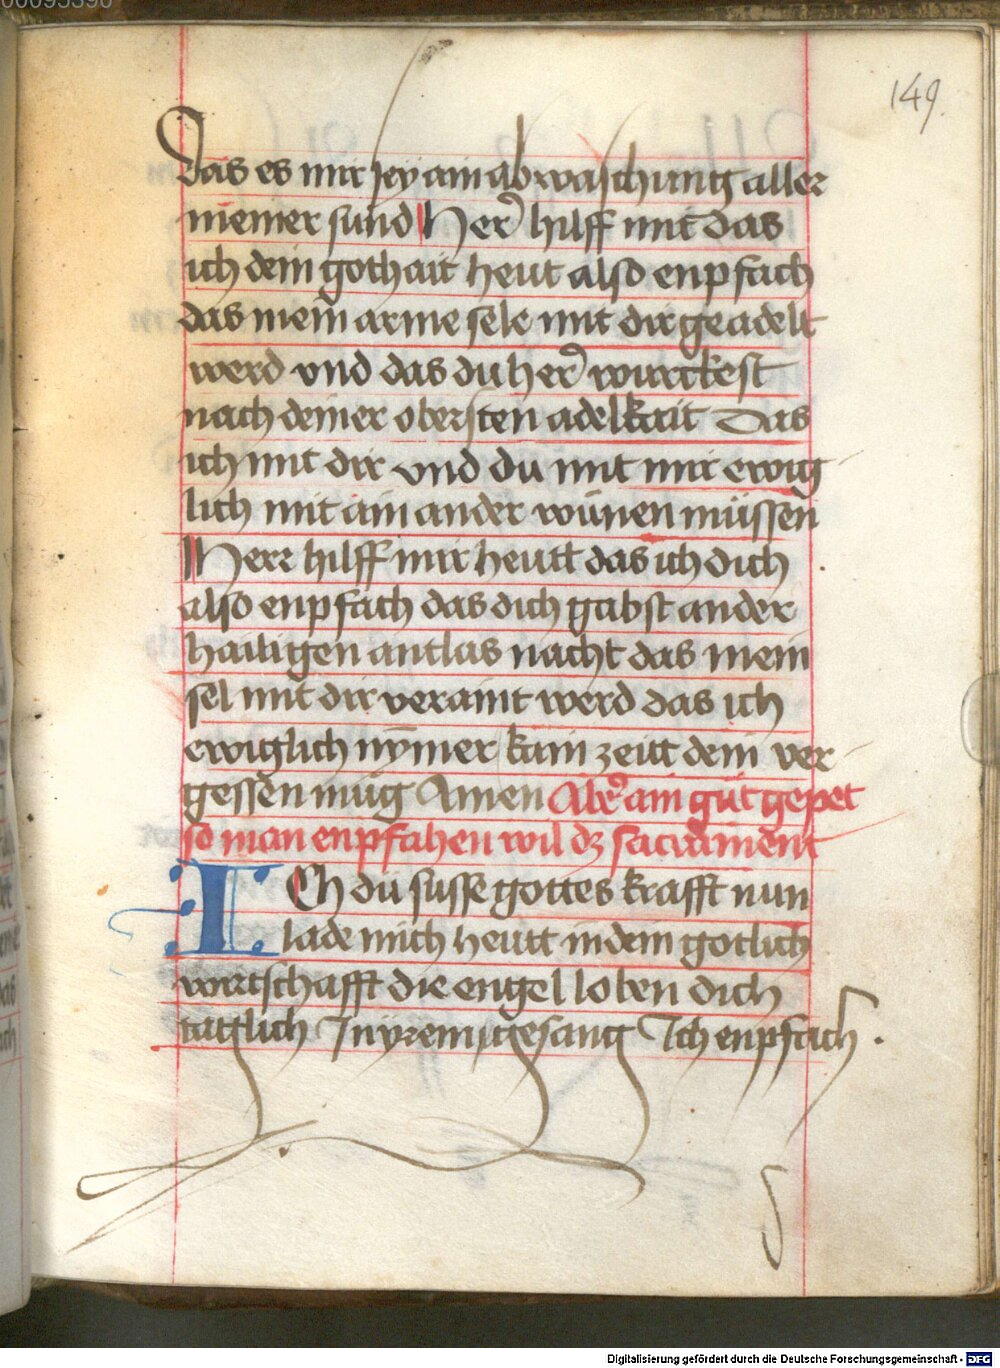 00095390
149.
Das es mir sey ain abwaschung aller
meiner sund Her hilff mir das
ich dein gothait heut also enpfach
das mein arme sele mit dir geadelt
werd vnd das du her wurckest
nach deiner obersten adelkait Das
ich mit dir vnd du mit mir ewig
lich mit ain ander wunen müssen
Herr hilff mir heutt das ich dich
also enpfach das dich gabst an der
hailigen antlas nacht das mein
sel mit dir veraint werd das ich
ewiglich nymer kain zeitt dein ver
gessen müg Amen Aber ain güt gepet
so man enpfahen wil dz sacrament
ICh du susse gottes krafft nun
lade mich heutt in dein gotlich
wirtschafft die engel loben dich
tattlich In yrem gesang Ich enpfach
Digitalisierung gefördert durch die Deutsche Forschungsgemeinschaft - DFG